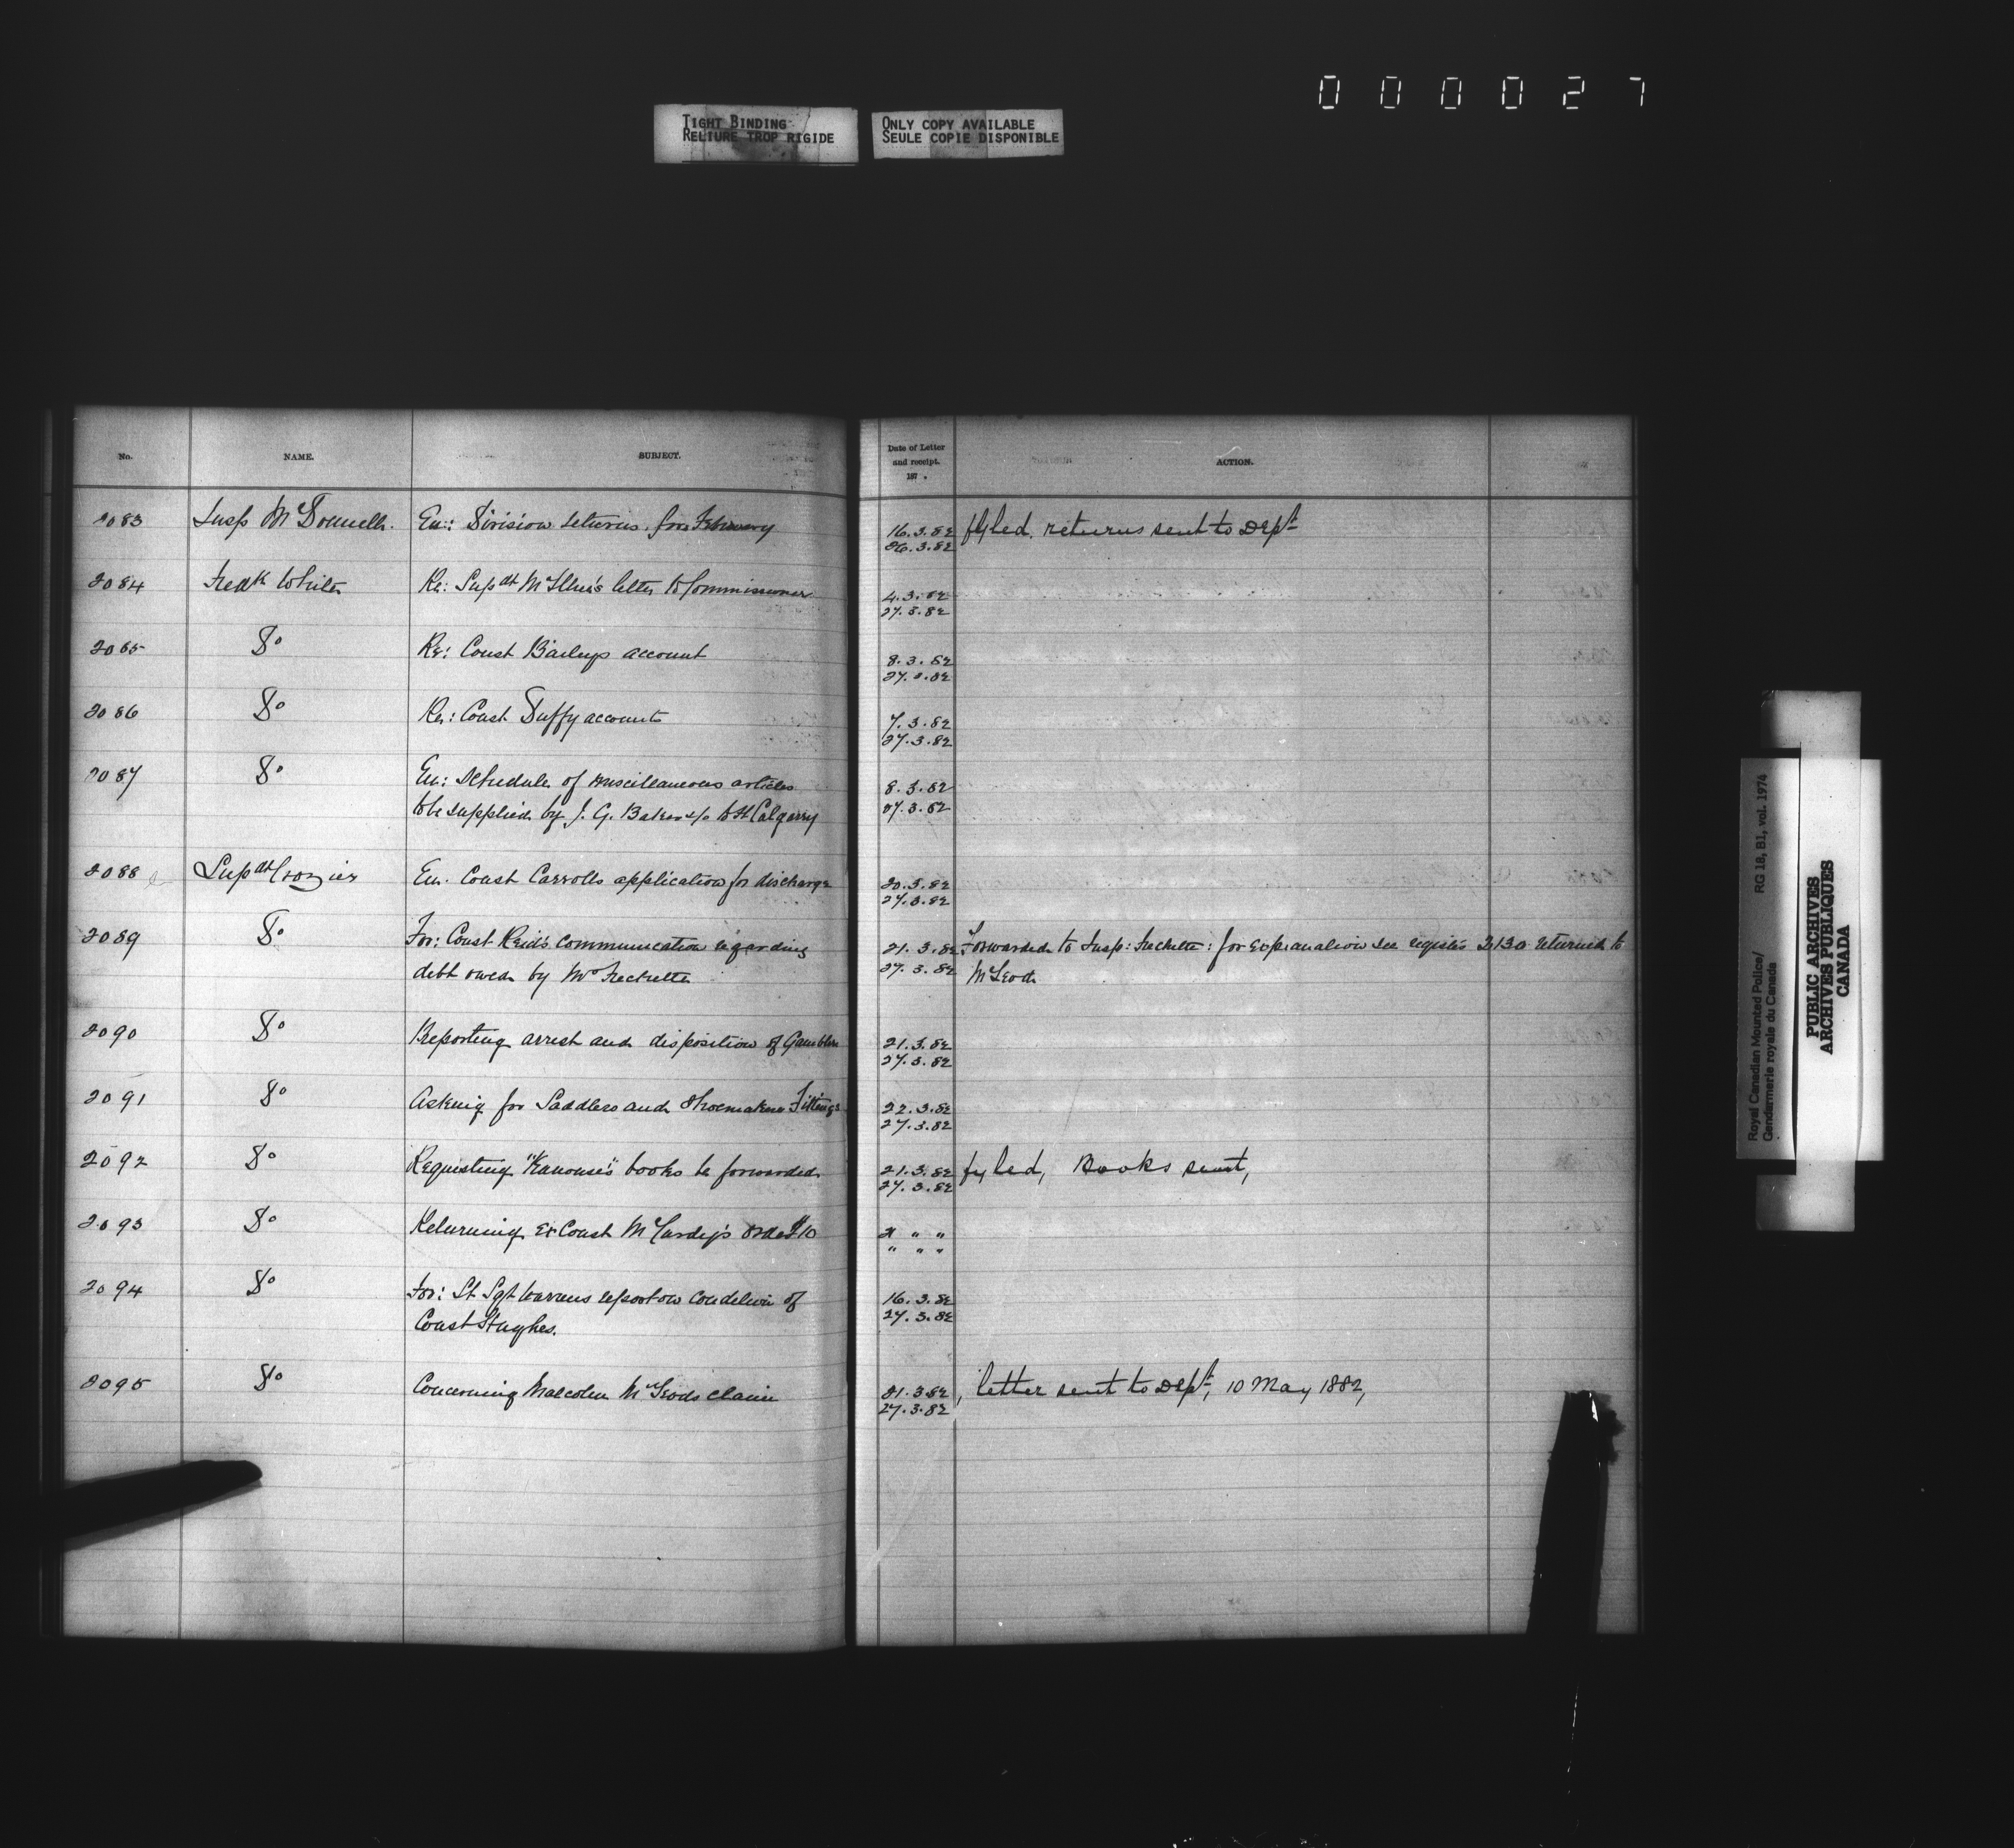 0 0 0 0 2 7
TIGHT BINDING
RELIURE TROP RIGIDE
ONLY COPY AVAILABLE
SEULE COPIE DISPONIBLE
No. NAME. SUBJECT. Date of Letter and receipt. 187 . ACTION.
2083 Insp McDonnell. En: Division returns for February 16.3.82 fyled, returns sent to Dept
26.3.82
2084 Fredk White Re: Supdt McIllree's letter to Commissioner 4.3.82
27.3.82
2085 Do Re: Const Baileys account 8.3.82
27.3.82
2086 Do Re: Const Duffy accounts 7.3.82
27.3.82
2087 Do En: Schedule of miscellaneous articles 8.3.82
to be supplied by J. G. Baker &Co to Ft Calgarry 27.3.82
2088 Supdt Crozier En. Const Carrolls application for discharge 20.3.82
27.3.82
2089 Do For: Const Reid's communication regarding 21.3.82 Forwarded to Insp: Frechette: for explanation see register 2130 returned to
debt owed by Mr Frechette 27.3.82 McLeod
2090 Do Reporting arrest and disposition of Gamblers 21.3.82
27.3.82
2091 Do Asking for Saddlers and Shoemakers Fittings 22.3.82
27.3.82
2092 Do Requesting "Kanouse's" books be forwarded 21.3.82 fyled, Books sent,
27.3.82
2093 Do Returning Ex Const order $10 21 " "
" " "
2094 Do For: St Sgt report on condition of 16.3.82
Const Hughes. 27.3.82
2095 Do Concerning Malcolm McLeods claim 21.3.82, letter sent to Dept, 10 May 1882,
27.3.82
Royal Canadian Mounted Police/ RG 18, B1, vol. 1974
Gendarmerie royale du Canada
PUBLIC ARCHIVES
ARCHIVES PUBLIQUES
CANADA